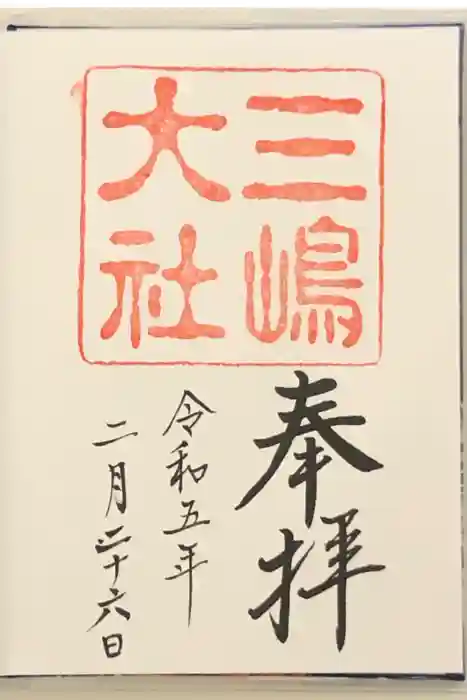 三嶋
大社
奉拝
令和五年
二月二十六日